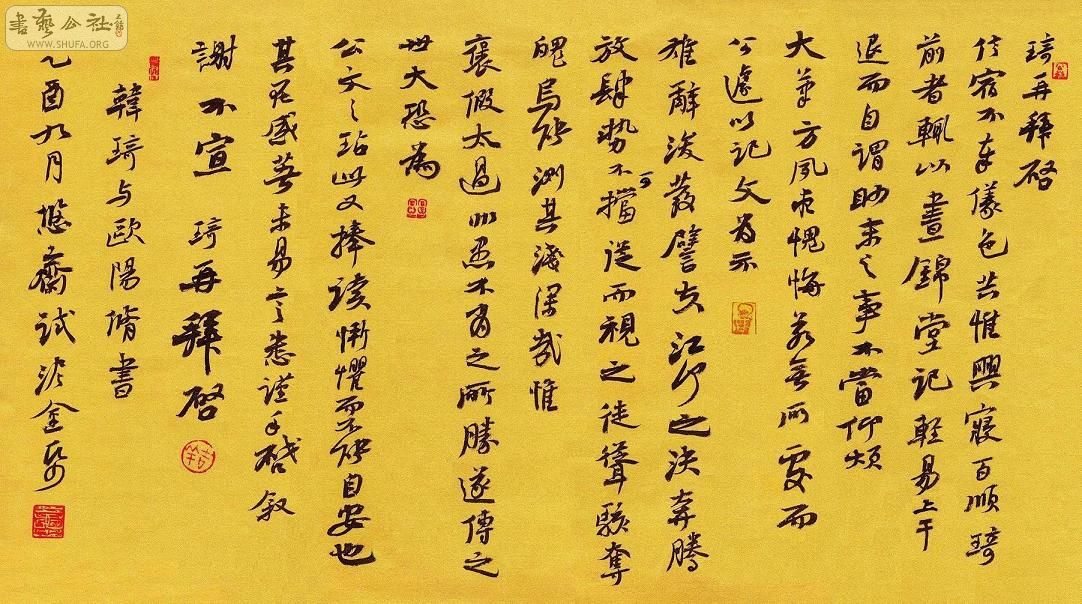 琦再拜啓
信宿不奉儀色共惟興寢百順琦
前者輒以晝錦堂記輕易上干
退而自謂眇末之事不當仰煩
大筆方夙夜愧悔若無所處而
公遽以記文為示
雄辭濬發譬夫江河之決奔騰
放肆勢不可擋從而視之徒聳駭奪
魄烏能測其淺深哉惟
褒假太過非愚不肖之所勝遂傳之
世大恐為
公文之玷此又捧讀慚懼而不能自安也
其在感著未易言悉謹手啟敘
謝不宣 琦再拜啓
韓琦与歐陽脩書
乙酉九月 齋試
書藝公社
WWW.SHUFA.ORG